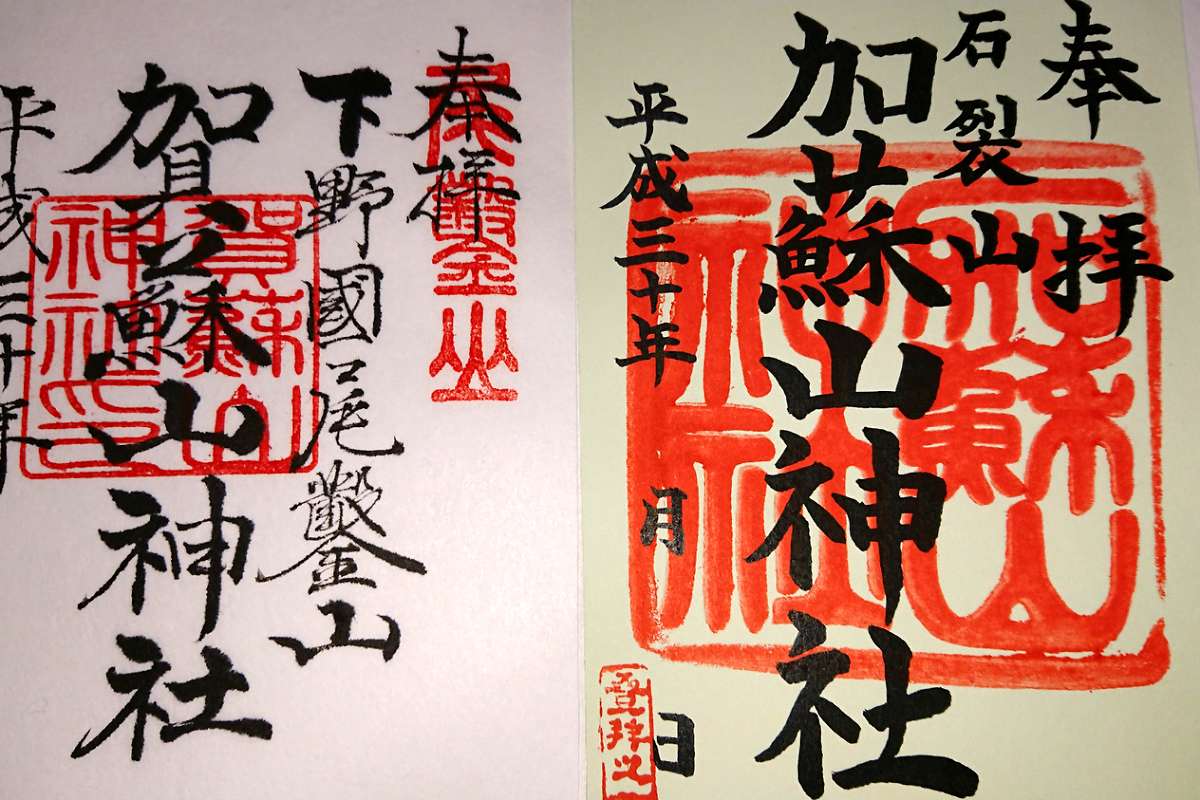 奉拝
石裂山
加蘇山神社
加蘇山神社
平成三十年 月 日
奉拝
尾鑿山
下野國尾鑿山
賀蘇山神社
賀蘇山神社印
平成三十年